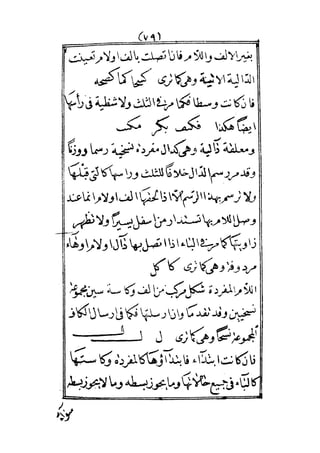 (٧٩)
بغير الالف واللام فان اتصلت بالف او لام تعينت
الدالية الاثينة وهى كماترى كـحا كما كصحه
فان كانت وسطا فكما مر فى الثلث ولا شظية فى رأسها
ايضا هكذا فكتب بكر مكتب
ومعلقة دالية وهى كدال مفردة نسخية رسما ووزنا
وقد مر رسم الدال خلافا للثلث ورأسها كالتى قبلها
ولا ترسم بهذا الرسم الا اذا لحقها الف او لام انما عند
وصل اللام بها تستدار من اسفل يسيرا ولا تظهر
زاويتها كما مر فى الباء اذا اتصل بها دال او لام او هاء
مردوفة وهى كماترى كا كل
اللام المفردة شكل مركب من الف وكاسة سين مجموعة
نسخيتين وقد تقدما وان ارسلتها فكما فى ارسال الكاف
المجموعة نسخا وهى كماترى ل ل
فان كانت ابتداء فابتداؤها كالمفردة وكاستها
كالباء فى جميع حالاتها وما يجوز بسطه وما لا يجوز بسطه